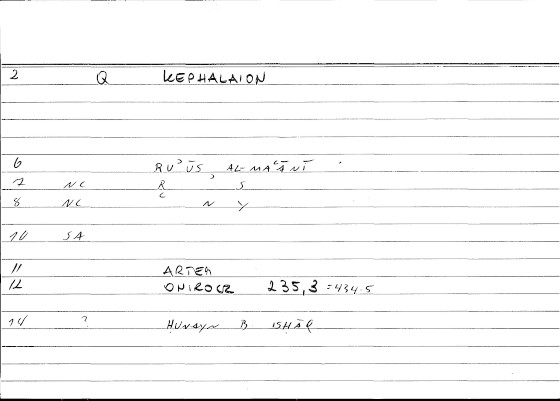 2 Q KEPHALAION
6 RU'ŪS, AL-MAʿĀNĪ
7 NC R S
8 NC C N Y
10 SA
11 ARTEM
12 ONIROCR 235,3 =434.5
14 ? HUNAYN B ISHĀQ